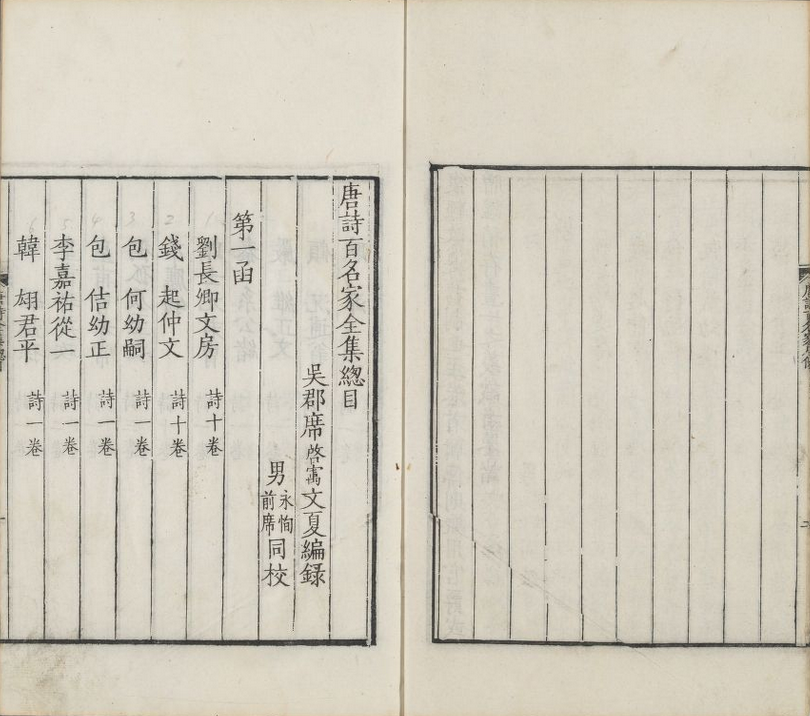 唐詩百名家全集總目
吳郡席啓寓文夏編錄
男永恂前席同校
第一函
劉長卿文房 詩十卷
錢起仲文 詩十卷
包何幼嗣 詩一卷
包佶幼正 詩一卷
李嘉祐從一 詩一卷
韓翃君平 詩一卷